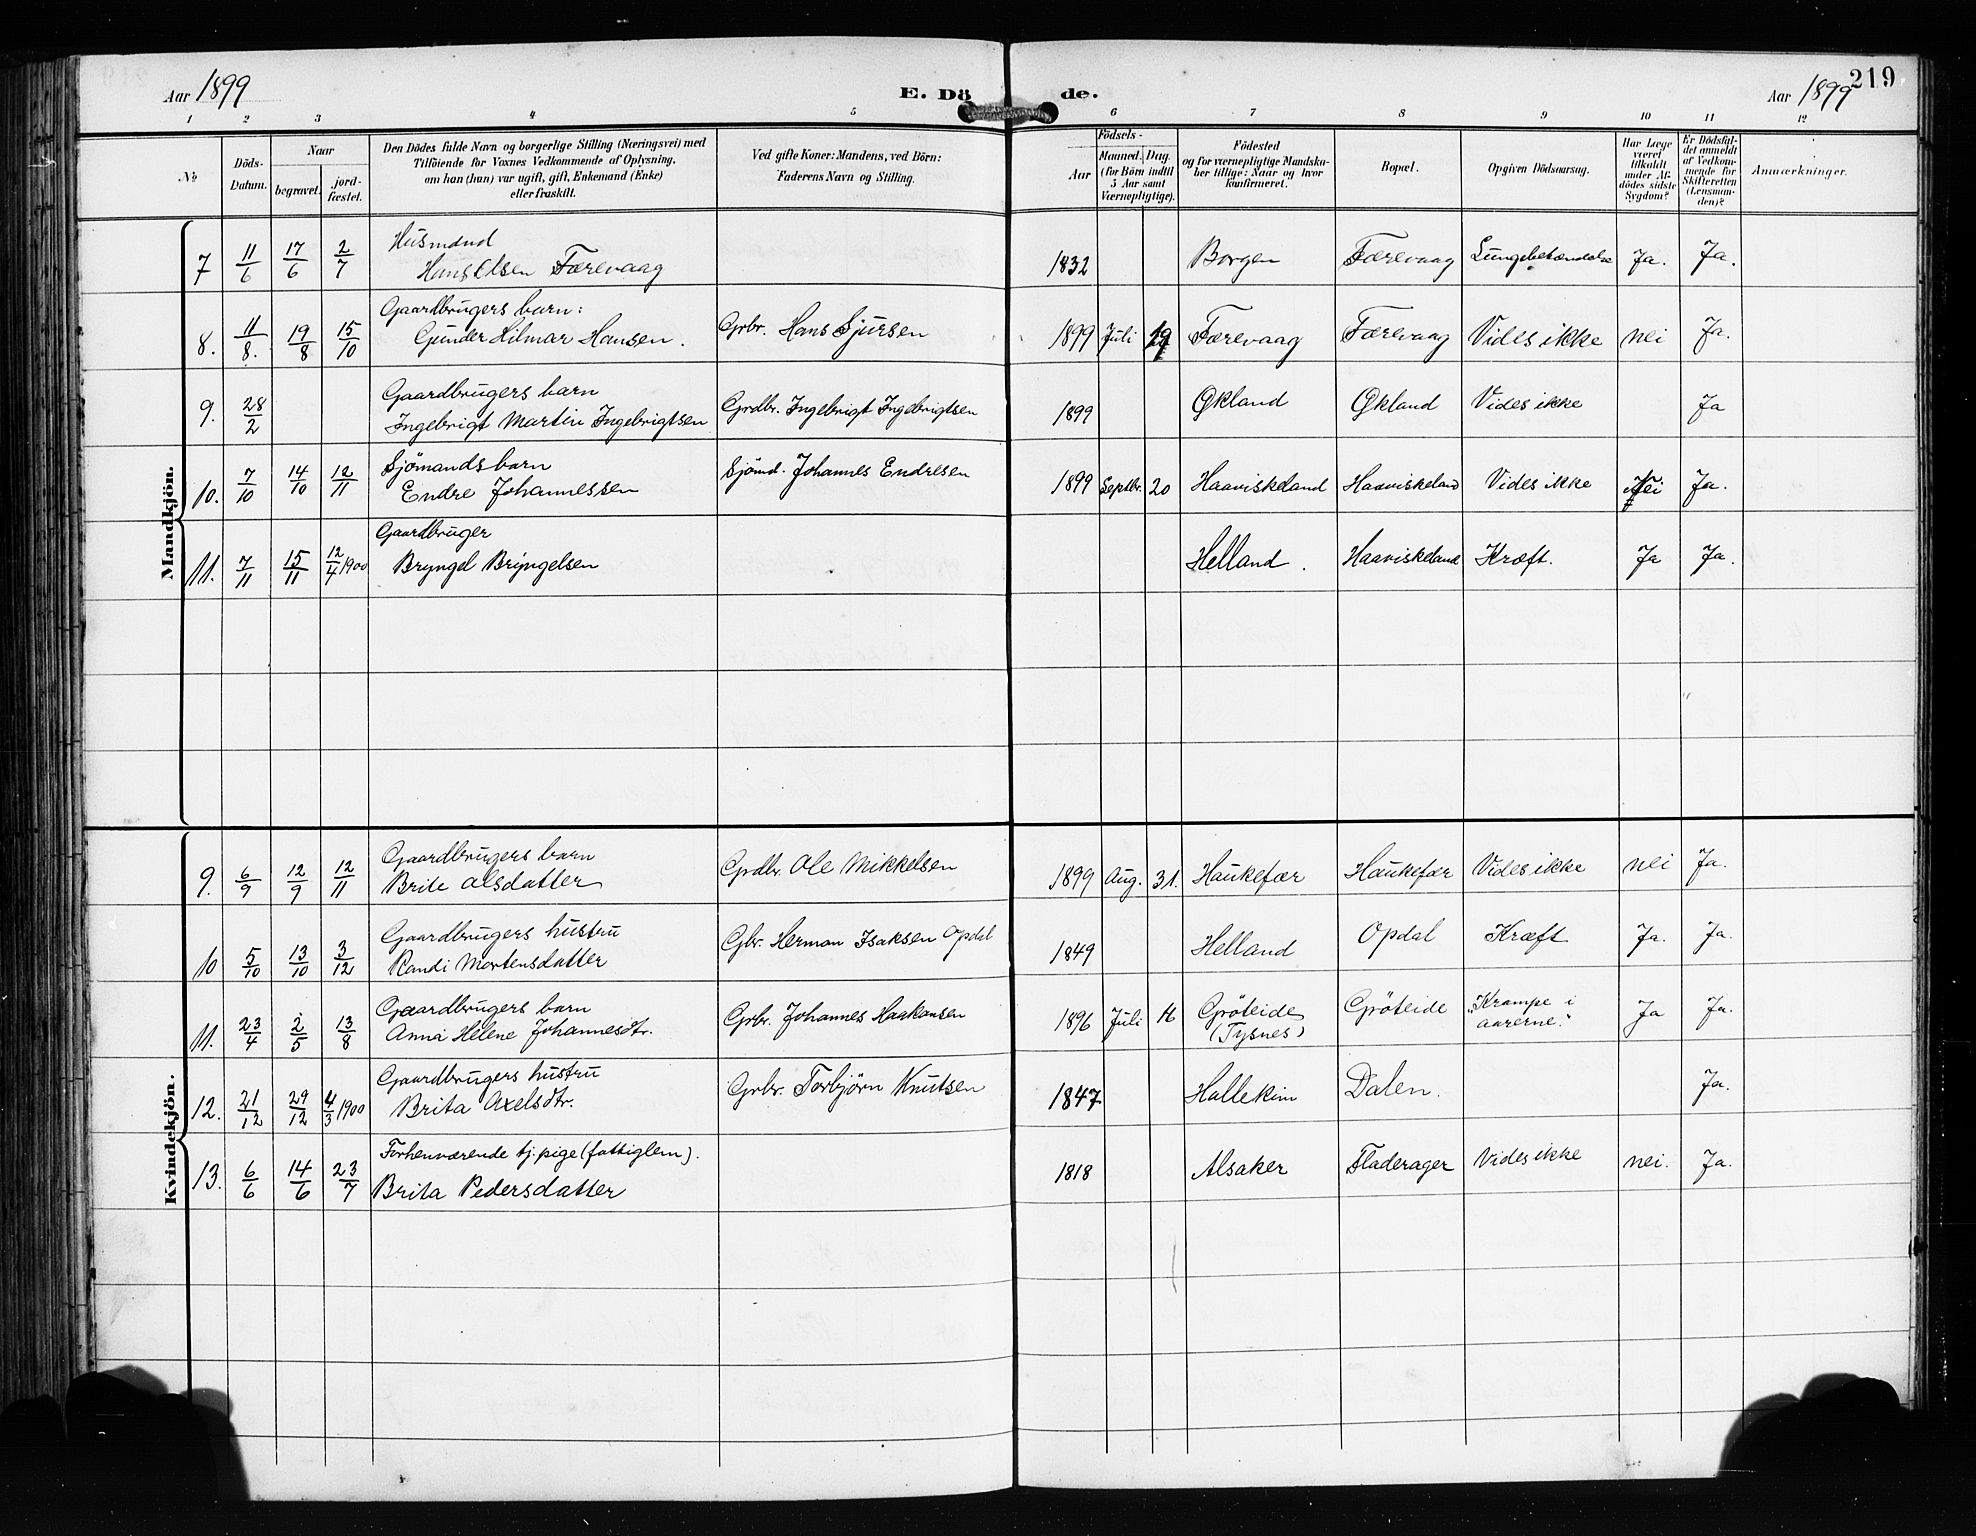 Aar 1899 E. Dö de. Aar 1899 219
1 2 3 4 5 6 7 8 9 10 11 12
No
Döds-Datum.
Naar
begravet.
jord-fæstet.
Den Dödes fulde Navn og borgerlige Stilling (Næringsvei) med
Tilföiende for Voxnes Vedkommende af Oplysning,
om han (hun) var ugift, gift, Enkemand (Enke)
eller fraskilt.
Ved gifte Koner: Mandens, ved Börn:
Faderens Navn og Stilling.
Födsels-
Aar
Maaned. Dag.
(for Börn indtil
5 Aar samt
Værnepligtige).
Födested
og for værnepligtige Mandska-
ber tillige: Naar og hvor
konfirmeret.
Bopæl.
Opgiven Dödsaarsag.
Har Læge
været
tilkaldt
under Af-
dödes sidste
Sygdom?
Er Dödsfal-
det anmeldt
af Vedkom-
mende for
Skifteretten
(Lensman-
den)?
Anmærkninger.
Mandkjön.
7 11/6 17/6 2/7 Husmand
Hans Olsen Færevaag 1832 Borgen Færevaag Lungebetændelse Ja. Ja.
8. 11/8. 19/8 15/10 Gaardbrugers barn:
Gunder Hilmar Hansen. Grbr. Hans Sjursen 1899 Juli 19 Færevaag Færevaag Vides ikke nei Ja.
9. 28/2 Gaardbrugers barn
Ingebrigt Martin Ingebrigtsen Grdbr. Ingebrigt Ingebrigtsen 1899 Økland Økland Vides ikke Ja
10. 7/10 14/10 12/11 Sjömands barn
Endre Johannessen Sjömd. Johannes Endresen 1899 Septbr. 20 Haaviskeland Haaviskeland Vides ikke Nei Ja.
11. 7/11 15/11 12/4 1900 Gaardbruger
Bryngel Bryngelsen Helland. Haaviskeland Kræft. Ja Ja.
Kvindekjön.
9. 6/9 12/9 12/11 Gaardbrugers barn
Brite Olsdatter Grdbr. Ole Mikkelsen 1899 Aug. 31. Haukefær Haukefær Vides ikke nei Ja.
10 5/10 13/10 3/12 Gaardbrugers hustru
Randi Mortensdatter Gbr. Herman Isaksen Opdal 1849 Helland Opdal Kræft Ja. Ja.
11. 23/4 2/5 13/8 Gaardbrugers barn
Anna Helene Johannesdtr. Grbr. Johannes Haakonsen 1896 Juli 16 Gröteide
(Tysnes) Gröteide "Krampe i
aarerne." Ja Ja.
12. 21/12 29/12 4/3 1900 Gaardbrugers hustru
Brita Axelsdtr. Grbr. Torbjörn Knutsen 1847 Hallekim Dalen. Ja.
13. 6/6 14/6 23/7 Forhenværende tj.pige (fattiglem).
Brita Pedersdatter 1818 Alsaker Fladerager Vides ikke nei. Ja.